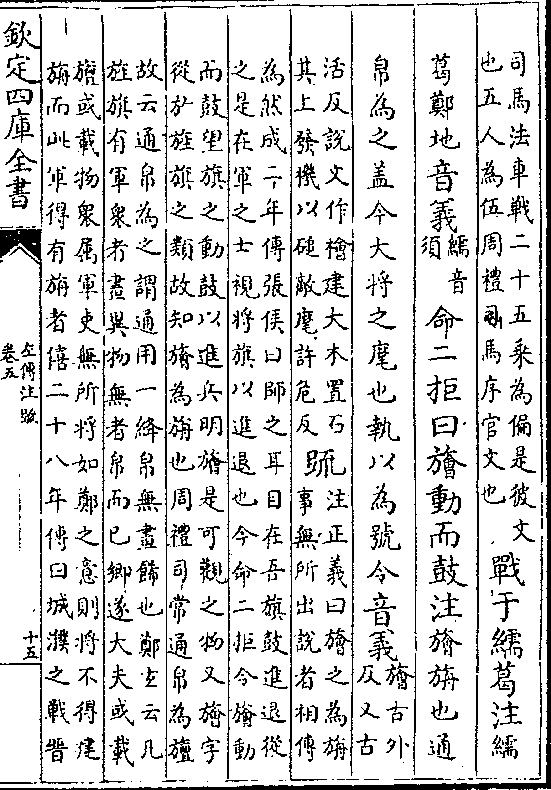 司馬法車戰二十五乘為偏是彼文
也五人為伍周禮司馬序官文也
戰于繻葛注繻
葛鄭地音義
繻音
須
命二拒曰旝動而鼓注旝旃也通
帛為之盖今大將之麾也執以為號令音義
旝古外
反又古
活反說文作檜建大木置石
其上發機以磓敵麾許危反
䟽
注正義曰旝之為旃
事無所出說者相傳
為然成二年傳張侯曰師之耳目在吾旗鼓進退從
之是在軍之士視將旗以進退也今命二拒令旝動
而鼓望旗之動鼓以進兵明旝是可觀之物又旝字
從㫃旌旗之類故知旝為旃也周禮司常通帛為旜
故云通帛為之謂通用一絳帛無畫飾也鄭𤣥云凡
旌旗有軍衆者畫異物無者帛而已鄉遂大夫或載
旜或載物衆属軍吏無所將如鄭之意則將不得建
旃而此軍得有旃者僖二十八年傳曰城濮之戰晋
欽定四庫全書
左傳注䟽
卷五
十五